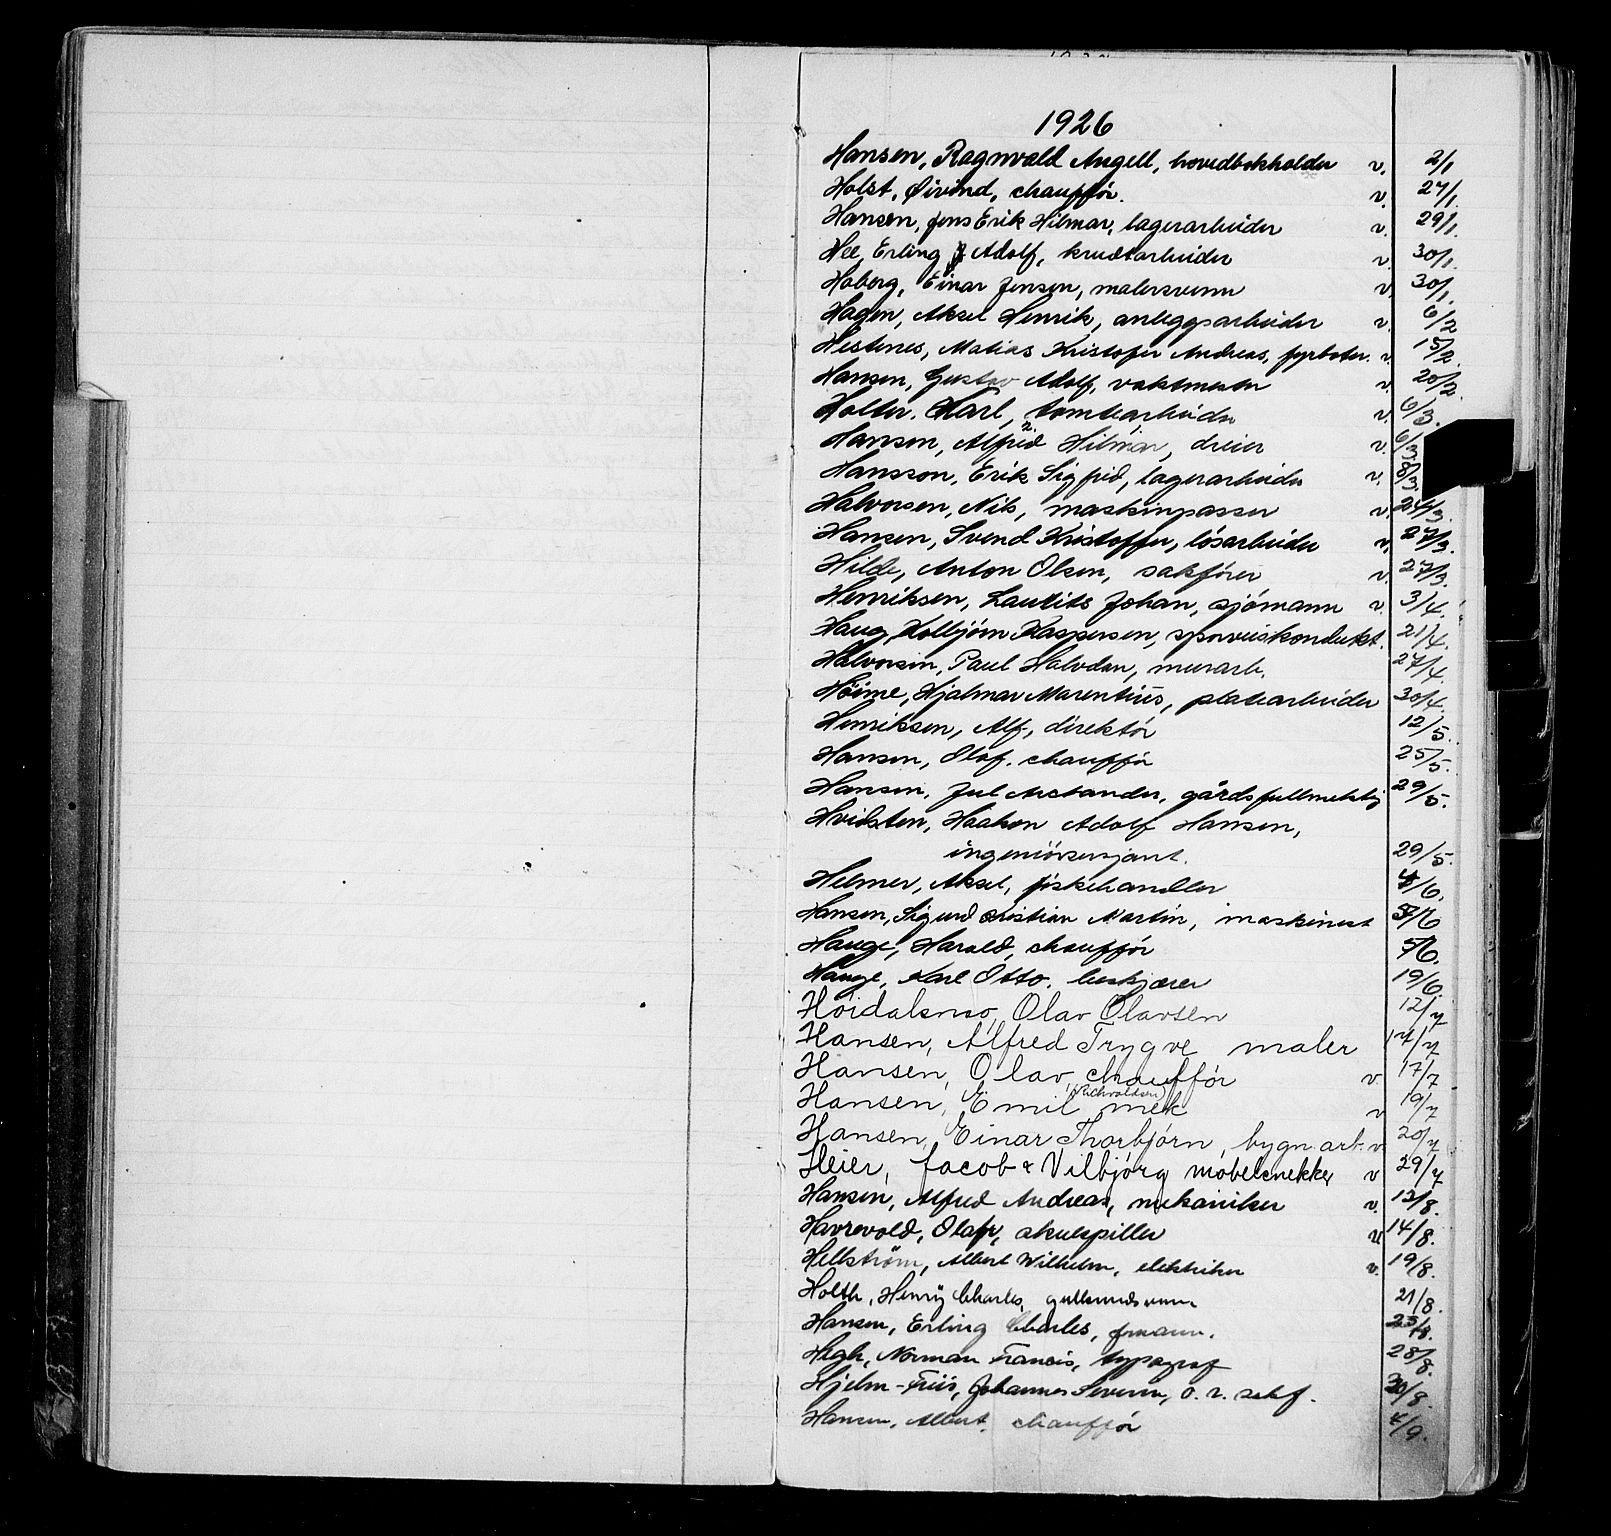 1926
Hansen, Ragnvald Angell, hovedbokholder v. 2/1
Holst, Øivind, chauffør. v. 27/1.
Hansen, Jens Erik Hilmar, lagerarbeider v. 29/1.
Hee, Erling Adolf, krudtarbeider v. 30/1.
Hoberg, Einar Jensen, malersvenn v. 30/1.
Hagen, Aksel Henrik, anleggsarbeider v. 6/2
Hestenes, Matias Kristofer Andreas, fyrbøter. v. 15/2.
Hansen, Gustav Adolf, vaktmester v. 20/2.
Holter, Karl, tomtearbeider v. 6/3.
Hansen, Alfred Hilmar, dreier v. 6/3
Hansson, Erik Sigfrid, lagerarbeider v. 8/3.
Halvorsen, Nils, maskinpasser v. 24/3.
Hansen, Svend Kristoffer, løsarbeider v. 27/3.
Hilde, Anton Olsen, sakfører v. 27/3.
Henriksen, Lauritz Johan, sjømann v. 3/4.
Haug, Kolbjørn Kaspersen, sporveiskondukt. 21/4.
Halvorsen, Paul Halvdan, murarb. 27/4.
Höime, Hjalmar Marentius, platearbeider 30/4.
Henriksen, Alf, direktør 12/5.
Hansen, Olaf, chauffør 25/5.
Hansen, Jul Arctander, gårdsfullmektig 29/5.
Hvidsten, Haakon Adolf Hansen,
ingeniørsersjant. 29/5.
Helmer, Aksel, fiskehandler 4/6.
Hansen, Sigurd Kristian Martin, maskinist 5/6
Hauge, Harald, chauffør 5/6.
Hauge, Karl Otto, beskjærer 19/6
Høidalsmo, Olav Olavsen 12/7
Hansen, Alfred Trygve maler 17/7
Hansen, Olav, chauffør v 17/7
Hansen, Emil (Richvoldsen) mek v 19/7
Hansen, Einar Thorbjørn, bygn.arb. v. 20/7
Heier, Jacob Vilbjørg møbelsnekker v 29/7
Hansen, Alfred Andreas, mekaniker v. 12/8.
Havrevold, Olafr, skuespiller v. 14/8.
Hellström, Albert Wilhelm, elektriker v. 19/8.
Holth, Henry Charles, gullsmedsvenn 21/8.
Hansen, Erling Charles, 25/8.
High, Norman Francis, typograf 28/8.
Hjelm-Friis, Johannes Severin, o. r. sakf. 30/8.
Hansen, Albert, chauffør 4/9.